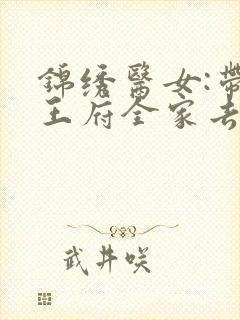 錦绣醫女:帶
王府全家去
武井咲